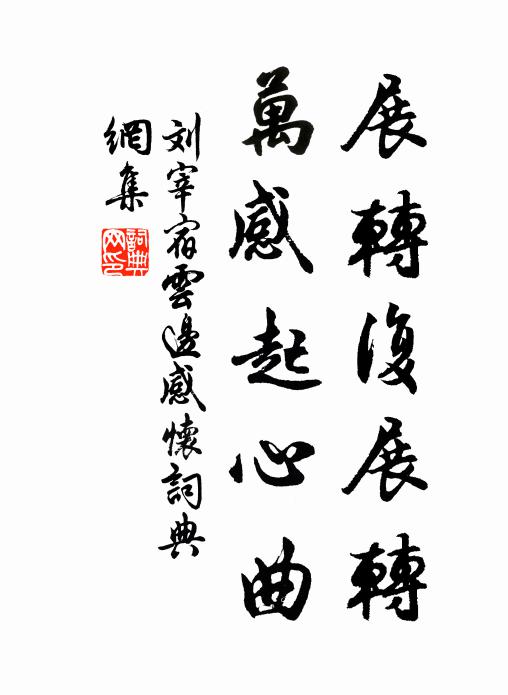 展轉復展轉
萬感起心曲
刘宰宿雲邊感懷詞典
網集
詞典
网印